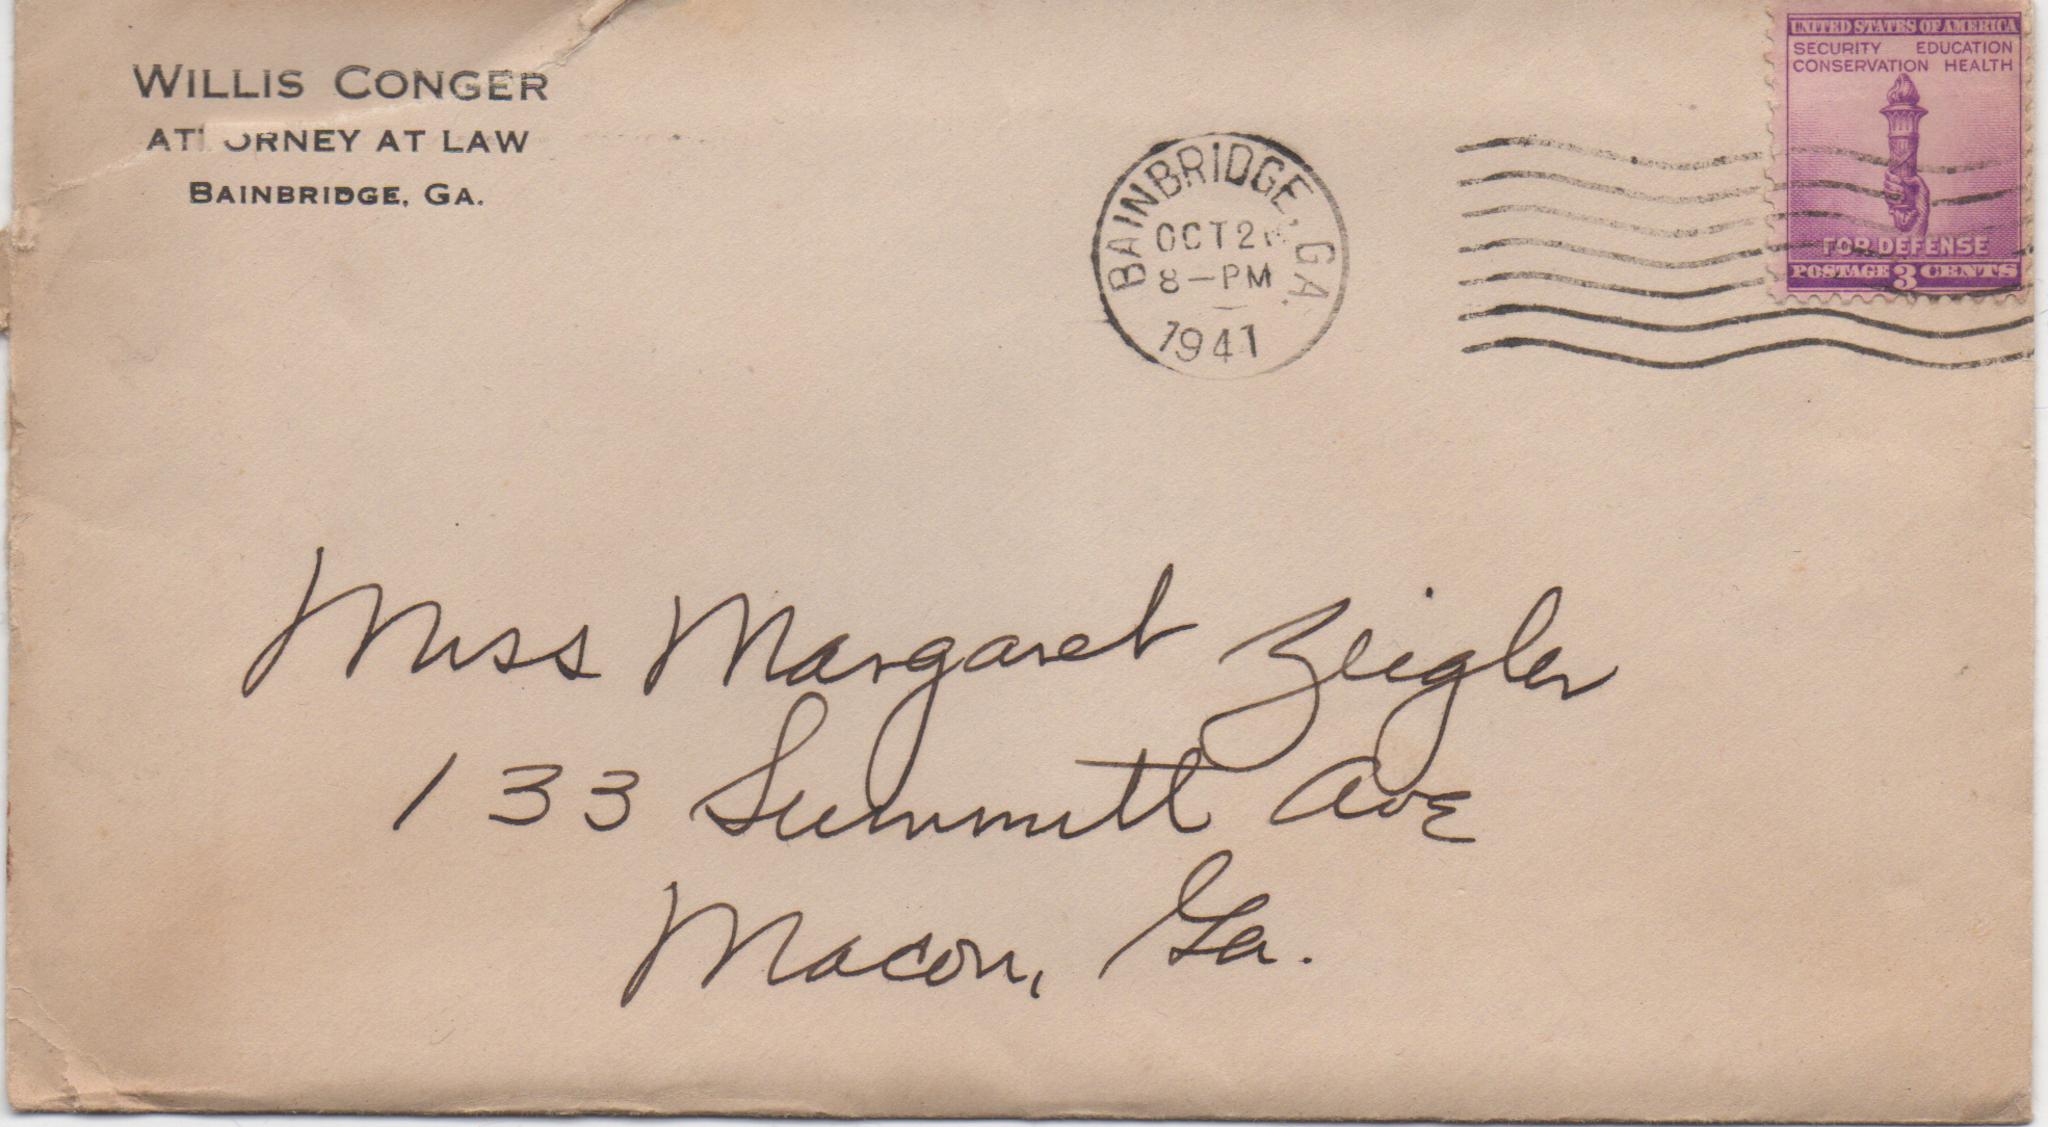 WILLIS CONGER
ATTORNEY AT LAW
BAINBRIDGE, GA.
BAINBRIDGE, GA.
OCT 2
8-PM
1941
UNITED STATES OF AMERICA
SECURITY EDUCATION
CONSERVATION HEALTH
FOR DEFENSE
POSTAGE 3 CENTS
Miss Margaret Zeigler
133 Summitt Ave
Macon, Ga.